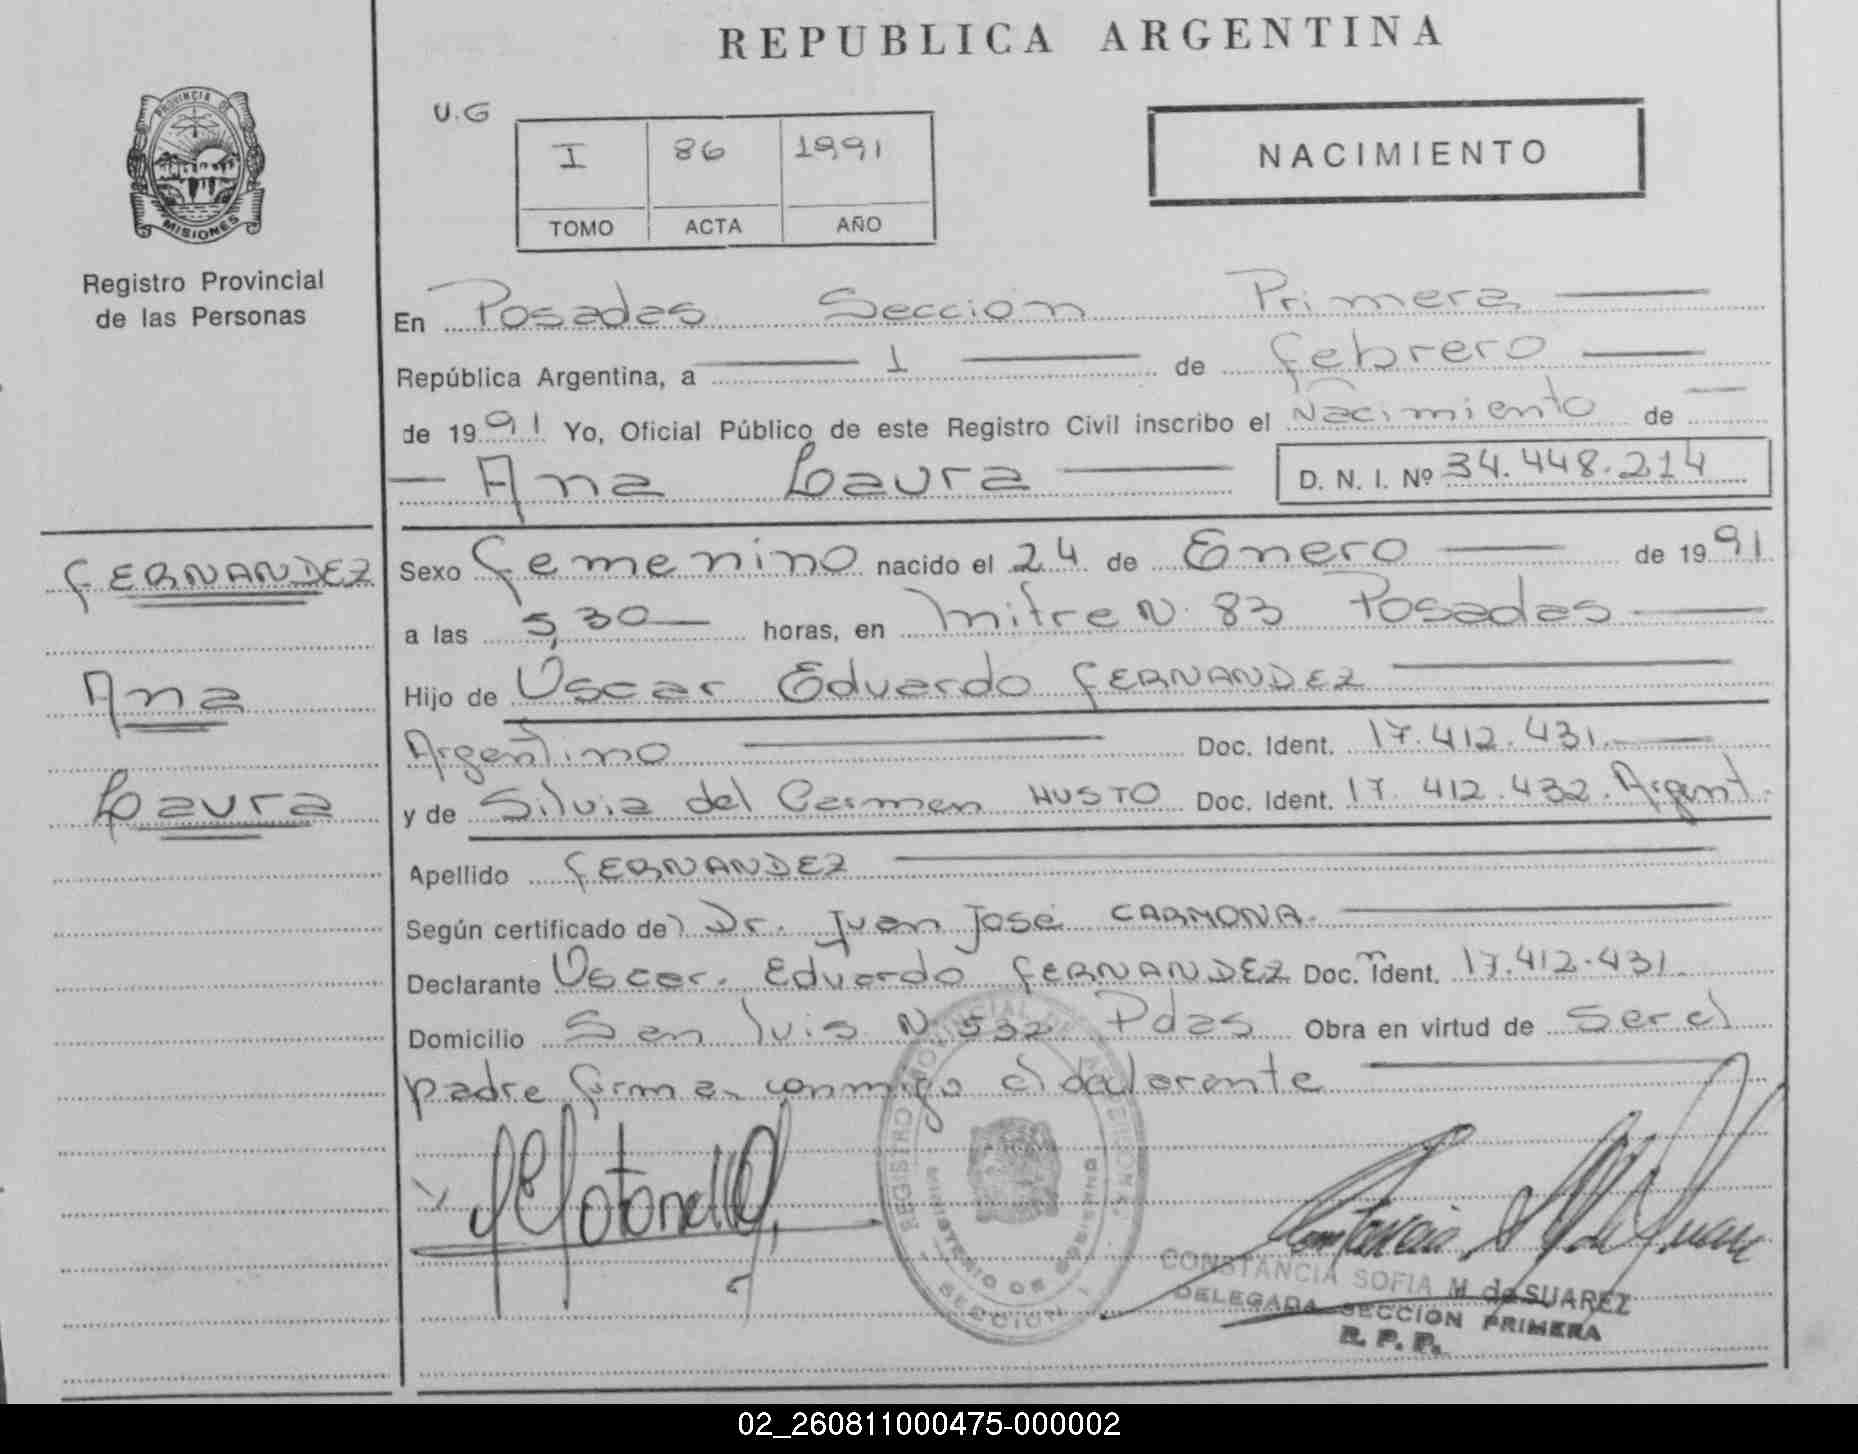 REPUBLICA ARGENTINA
PROVINCIA DE
MISIONES
Registro Provincial
de las Personas
U.G
I 86 1991
TOMO ACTA AÑO
NACIMIENTO
En Posadas Seccion Primera
República Argentina, a 1 de febrero
de 1991 Yo, Oficial Público de este Registro Civil inscribo el Nacimiento de
Ana Laura D. N. I. Nº 34.448.214
FERNANDEZ
Ana
Laura
Sexo femenino nacido el 24 de Enero de 1991
a las 5,30 horas, en Mitre N. 83 Posadas
Hijo de Oscar Eduardo FERNANDEZ
Argentino Doc. Ident. 17.412.431.
y de Silvia del Carmen HUSTO Doc. Ident. 17.412.432. Argent.
Apellido FERNANDEZ
Según certificado del Dr. Juan José CARMONA.
Declarante Oscar Eduardo FERNANDEZ Doc. Ident. 17.412.431.
Domicilio San luis N. 532 Pdas Obra en virtud de ser el
padre firma conmigo el declarante
REGISTRO PROVINCIAL DE
MINISTERIO DE GOBIERNO
SECCION 1
CONSTANCIA SOFIA M de SUAREZ
DELEGADA SECCION PRIMERA
R. P. P.
02_260811000475-000002